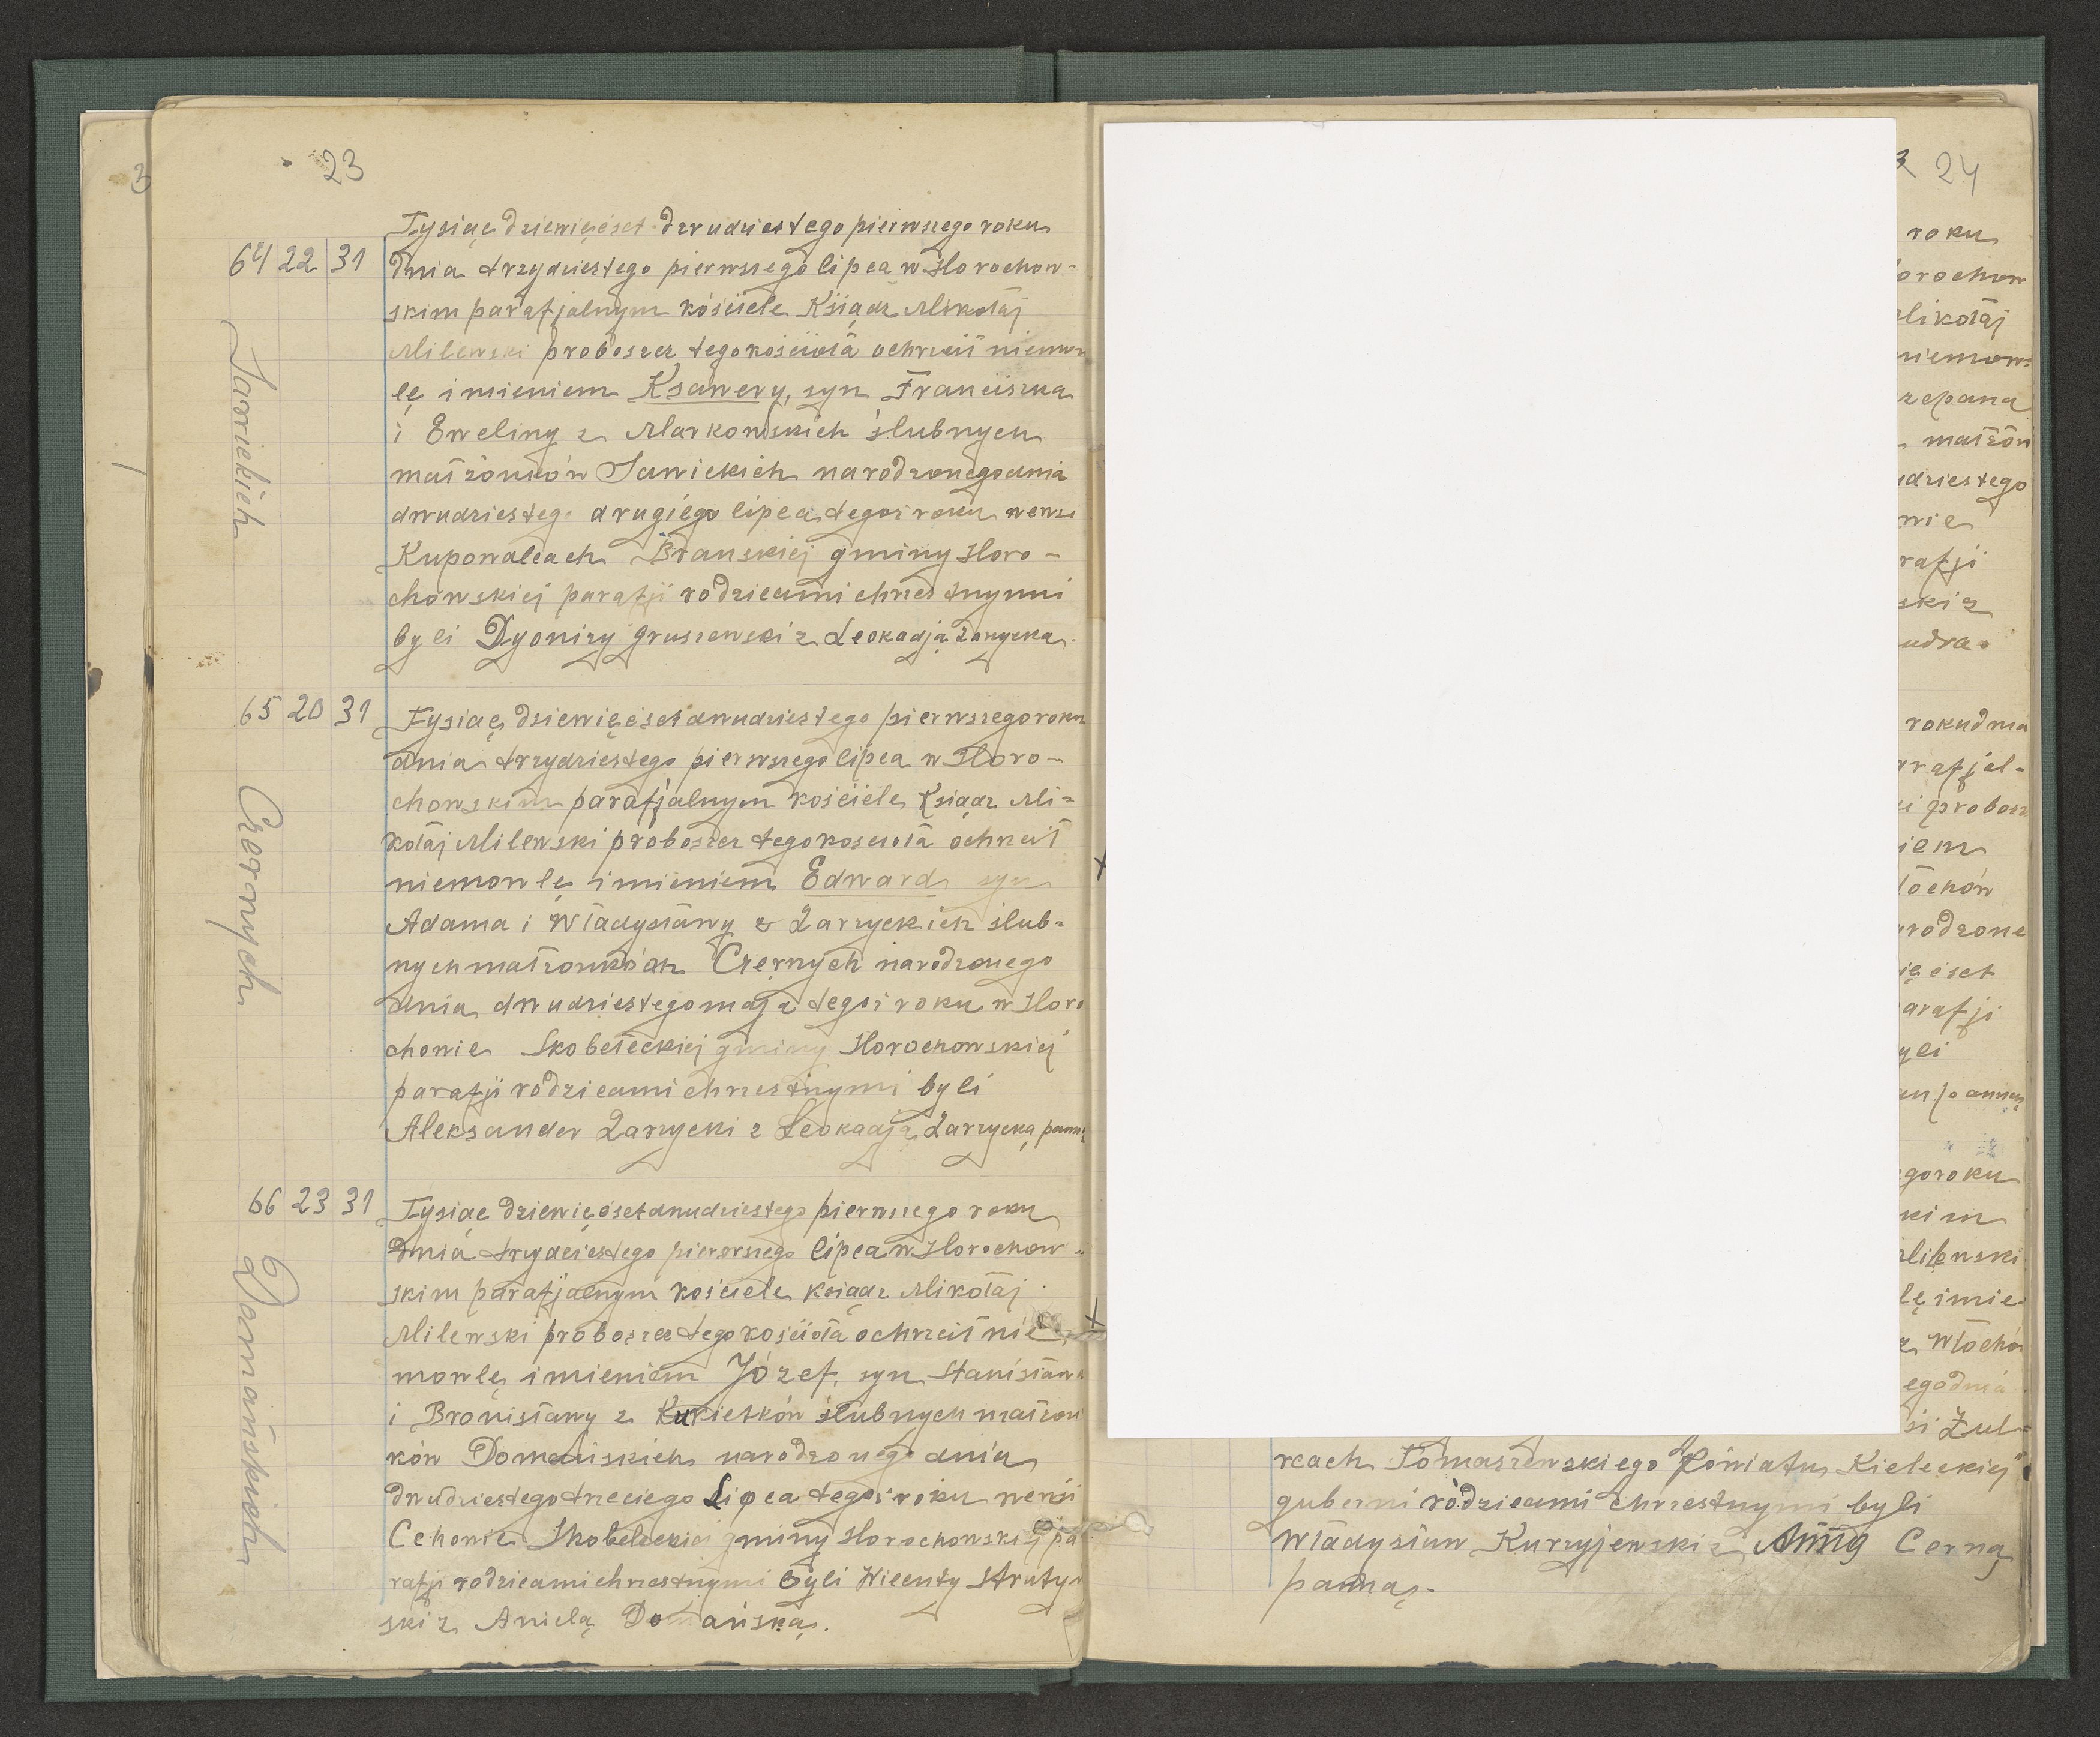 23
Tysiąc dziewięćset dwudziestego pierwszego roku
64 22 31 dnia trzydziestego pierwszego lipca w Horochow-
skim parafjalnym kościele Ksiądz Mikołaj
Milewski proboszcz tego kościoła ochrzcił niemow
lę imieniem Ksawery, syn Franciszka
i Eweliny z Markowskich ślubnych
małżonków Sawickich narodzonego dnia
dwudziestego drugiego lipca tegoż roku we wsi
Kupowalcach Brańskiej gminy Horo-
chowskiej parafji rodzicami chrzestnymi
byli Dyonizy Gruszewski z Leokadją
Sawickich
65 20 31 Tysiąc dziewięćset dwudziestego pierwszego roku
dnia trzydziestego pierwszego lipca w Horo-
chowskim parafjalnym kościele Ksiądz Mi-
kołaj Milewski proboszcz tego kościoła ochrzcił
niemowlę imieniem Edward syn
Adama i Władysławy z Zarzyckich ślub-
nych małżonków Czernych narodzonego
dnia dwudziestego maja tegoż roku w Horo
chowie Skobełeckiej gminy Horochowskiej
parafji rodzicami chrzestnymi byli
Aleksander Zarzycki z Leokadją Zarzycką panną
Czernych
66 23 31 Tysiąc dziewięćset dwudziestego pierwszego roku
dnia trzydziestego pierwszego lipca w Horochow-
skim parafjalnym kościele ksiądz Mikołaj
Milewski proboszcz tego kościoła ochrzcił nie
mowlę imieniem Józef, syn Stanisława
i Bronisławy z Kukiełków ślubnych małżon
ków Domańskich narodzonego dnia
dwudziestego trzeciego Lipca tegoż roku we wsi
Cehowie Skobeleckiej gminy Horochowskiej pa
rafji rodzicami chrzestnymi byli Wicenty Strutyń
ski z Anielą Domańską.
Domańskich
24
roku
orochow
likołaj
niemow
zepana
małżon
udziestego
wie
rafji
ski z
udra.
roku dnia
arafjal-
i probosz
iem
łochów
rodzone
ięćset
arafji
yli
panną
go roku
kim
Milewski
lę imie
z Włochó
ego dnia
si Żul-
rcach Tomaszewskiego Powiatu Kieleckiej
guberni rodzicami chrzestnymi byli
Władysław Kurzyjewski z Anną Cerną
panną.